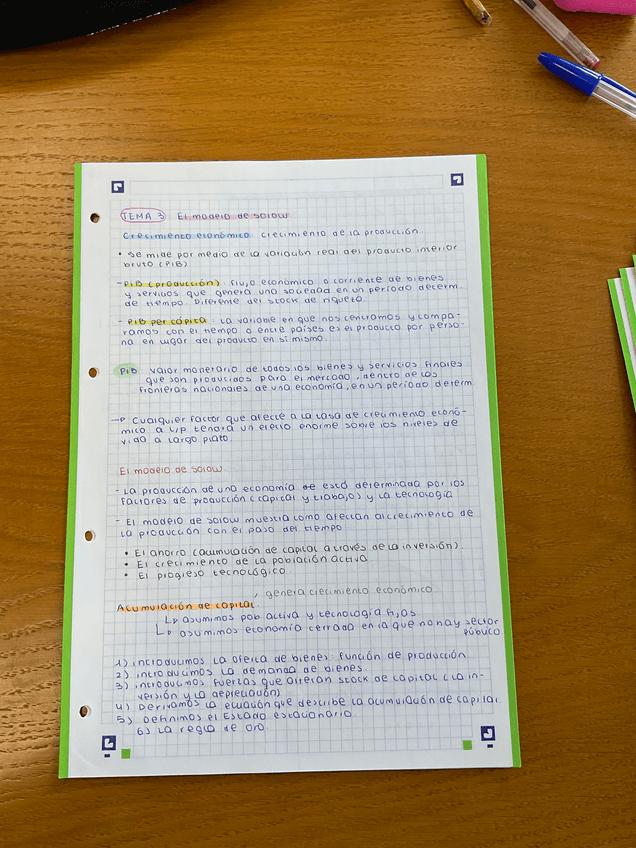 TEMA 3 El modelo de solow
Crecimiento económico: crecimiento de la producción.
• Se mide por medio de la variación real del producto interior
bruto (PIB).
- PIB (producción): flujo económico o corriente de bienes
y servicios que genera una sociedad en un período determ.
de tiempo. Diferente del stock de riqueza.
- PIB per cápita: la variable en que nos centramos y compa-
ramos con el tiempo o entre países es el producto por perso-
na en lugar del producto en sí mismo.
PIB valor monetario de todos los bienes y servicios finales
que son producidos para el mercado, dentro de las
fronteras nacionales de una economía, en un período determ
→ Cualquier factor que afecte a la tasa de crecimiento econó-
mico a L/P tendrá un efecto enorme sobre los niveles de
vida a largo plazo.
El modelo de solow
- La producción de una economía está determinada por los
factores de producción (capital y trabajo) y la tecnología
- El modelo de solow muestra como afectan al crecimiento de
la producción con el paso del tiempo
• El ahorro (acumulación de capital a través de la inversión).
• El crecimiento de la población activa
• El progreso tecnológico.
Acumulación de capital, genera crecimiento económico
↳ asumimos pob activa y tecnología fijos
↳ asumimos economía cerrada en la que no hay sector
público
1) introducimos la oferta de bienes: función de producción
2) introducimos la demanda de bienes.
3) introducimos fuerzas que alteran stock de capital (la in-
versión y la depreciación)
4) Derivamos la ecuación que describe la acumulación de capital
5) Definimos el Estado estacionario.
6) La regla de oro.